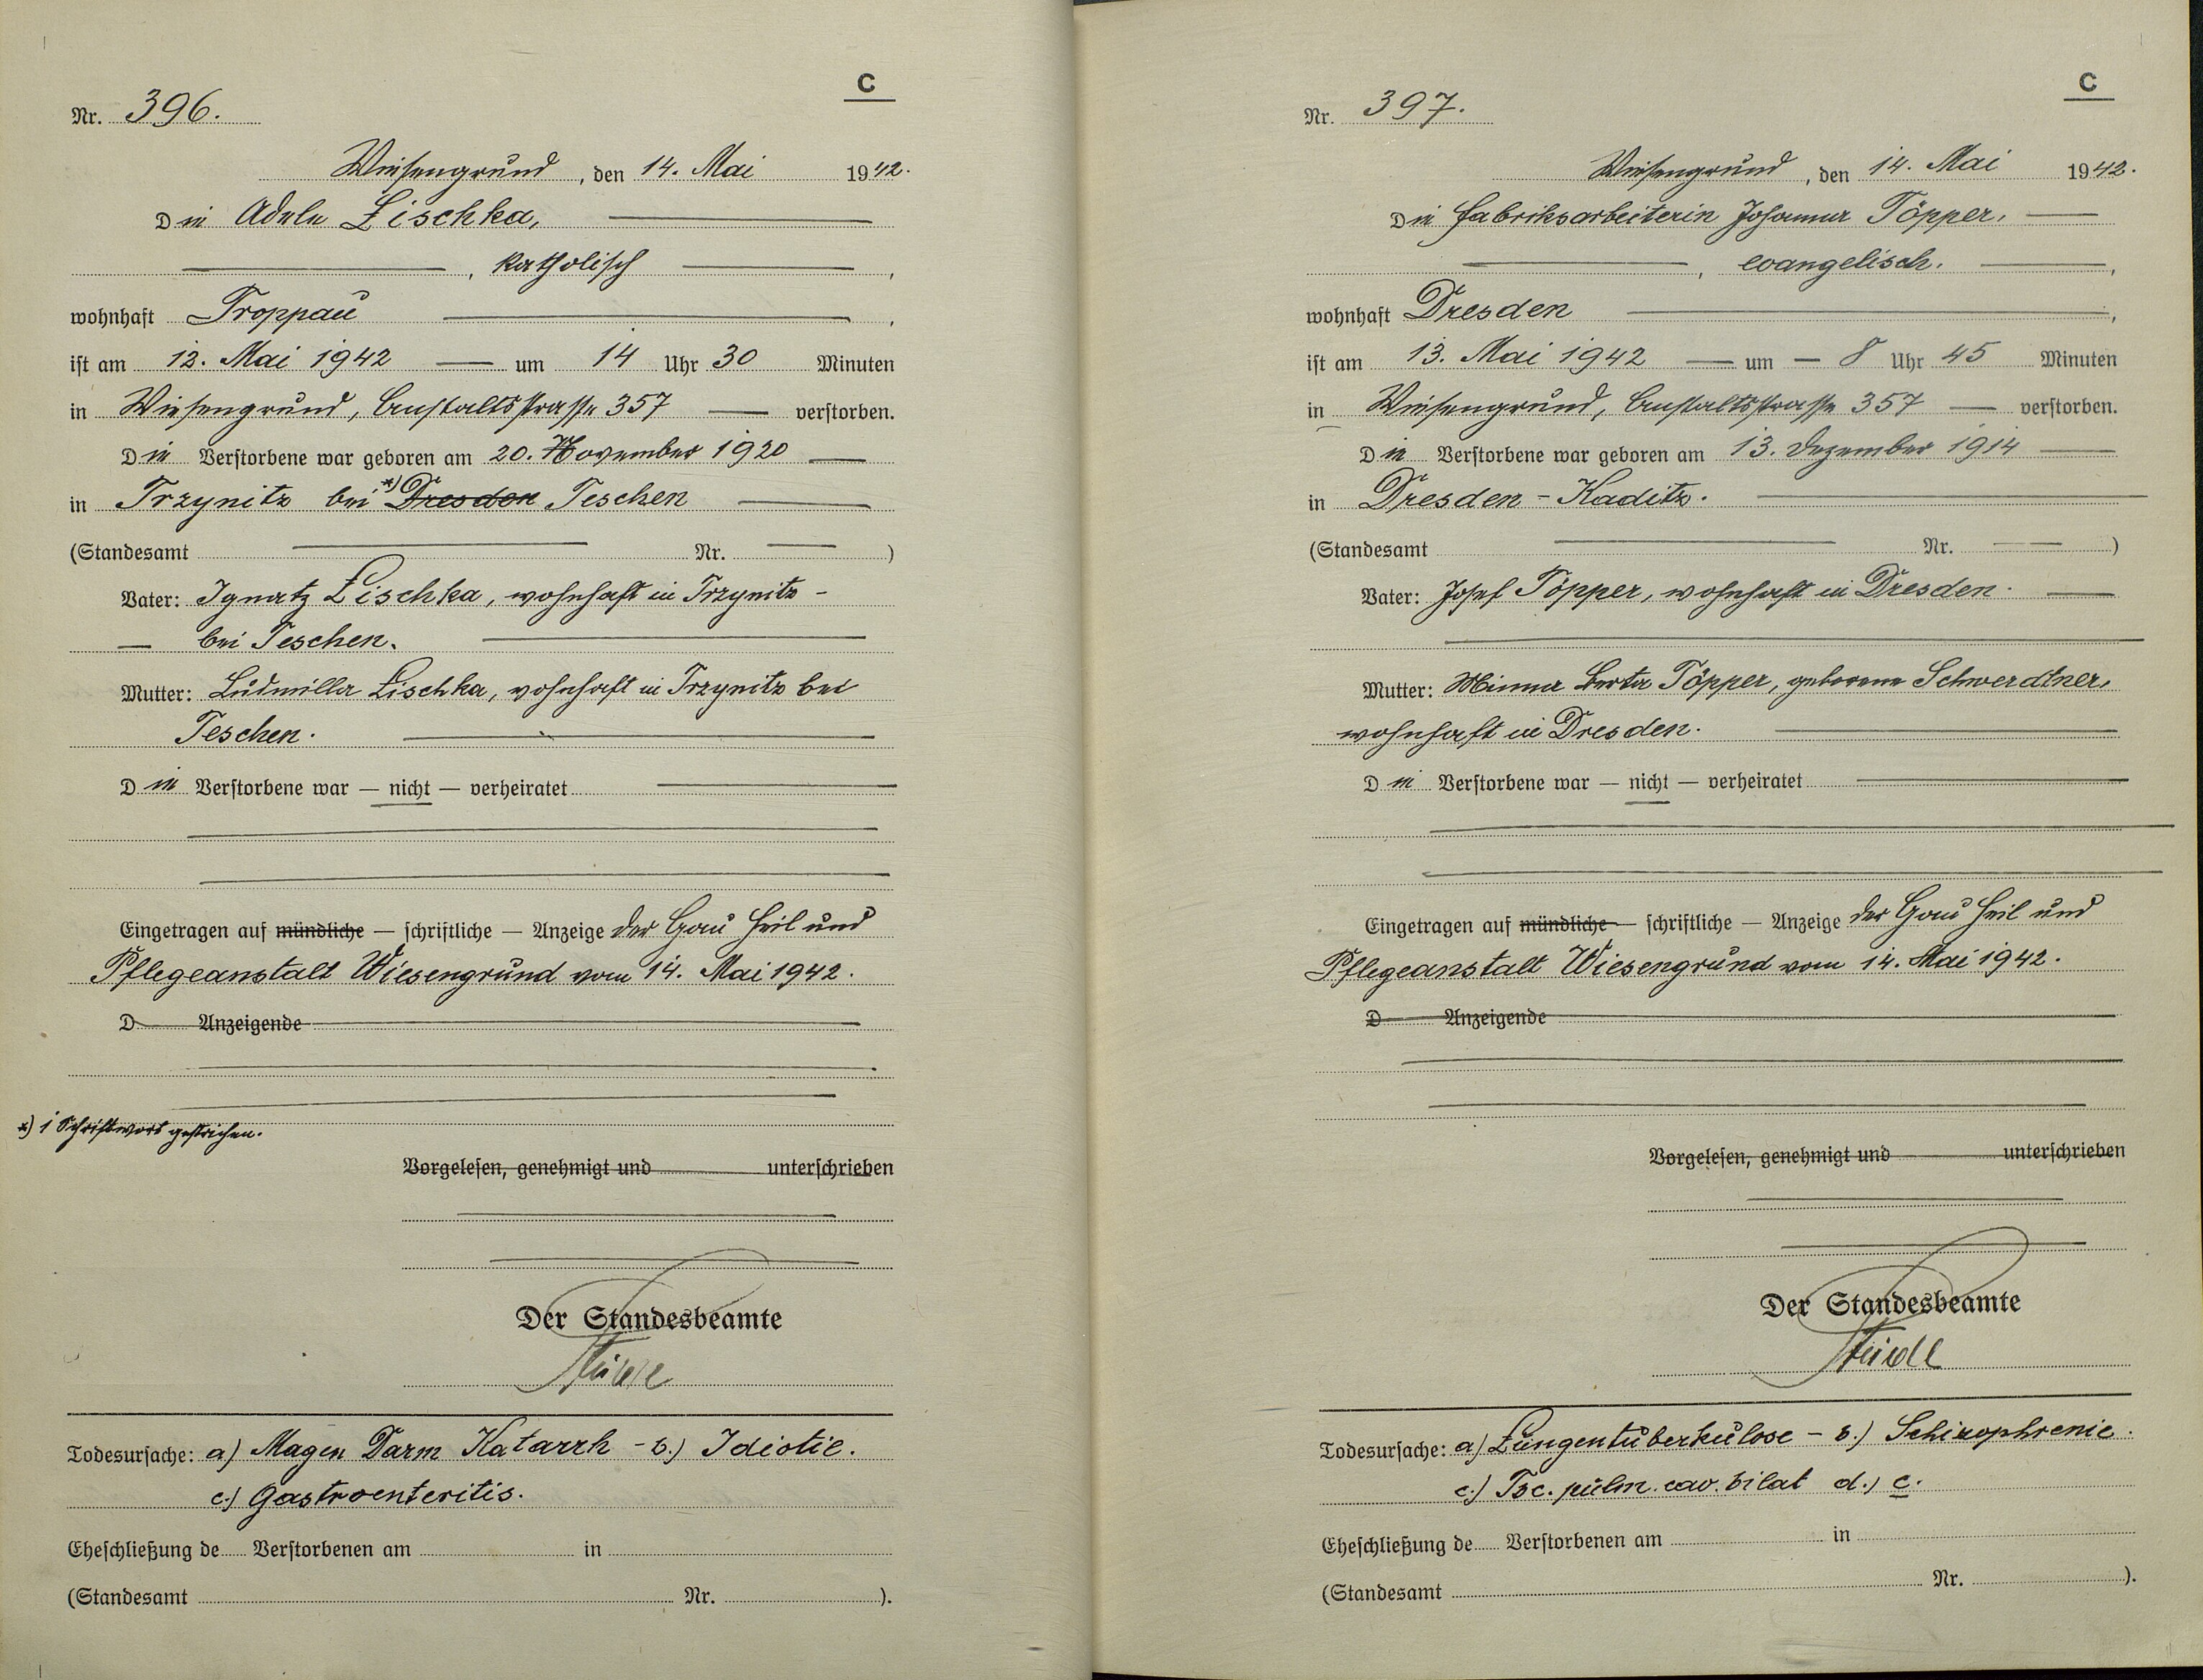 C
Nr. 396.
Wiesengrund, den 14. Mai 1942.
Die Adele Lischka,
, katholisch ,
wohnhaft Troppau ,
ist am 12. Mai 1942 — um 14 Uhr 30 Minuten
in Wiesengrund, Anstaltsstrasse 357 — verstorben.
Die Verstorbene war geboren am 20. November 1920 —
in Trzynitz bei *) Dresden Teschen —
(Standesamt — Nr. — )
Vater: Ignatz Lischka, wohnhaft in Trzynitz -
— bei Teschen.
Mutter: Ludmilla Lischka, wohnhaft in Trzynitz bei
Teschen.
Die Verstorbene war — nicht — verheiratet
Eingetragen auf mündliche — schriftliche — Anzeige der Gau Heil und
Pflegeanstalt Wiesengrund vom 14. Mai 1942.
D Anzeigende
*) 1 Schriftwort gestrichen.
Vorgelesen, genehmigt und unterschrieben
Der Standesbeamte
Todesursache: a) Magen Darm Katarrh - b.) Idiotie.
c.) Gastroenteritis.
Eheschließung de Verstorbenen am in
(Standesamt Nr. ).
C
Nr. 397.
Wiesengrund, den 14. Mai 1942.
Die Fabriksarbeiterin Johanna Töpper, —
, evangelisch. ,
wohnhaft Dresden ,
ist am 13. Mai 1942 — um — 8 Uhr 45 Minuten
in Wiesengrund, Anstaltsstrasse 357 — verstorben.
Die Verstorbene war geboren am 13. Dezember 1914 —
in Dresden - Kaditz.
(Standesamt — Nr. — )
Vater: Josef Töpper, wohnhaft in Dresden. —
Mutter: Minna Berta Töpper, geborene Schwerdtner,
wohnhaft in Dresden.
Die Verstorbene war — nicht — verheiratet
Eingetragen auf mündliche — schriftliche — Anzeige der Gau Heil und
Pflegeanstalt Wiesengrund vom 14. Mai 1942.
D Anzeigende
Vorgelesen, genehmigt und unterschrieben
Der Standesbeamte
Todesursache: a) Lungentuberkulose - b.) Schizophrenie.
c.) Tbc. pulm. cav. bilat d.) c.
Eheschließung de Verstorbenen am in
(Standesamt Nr. ).